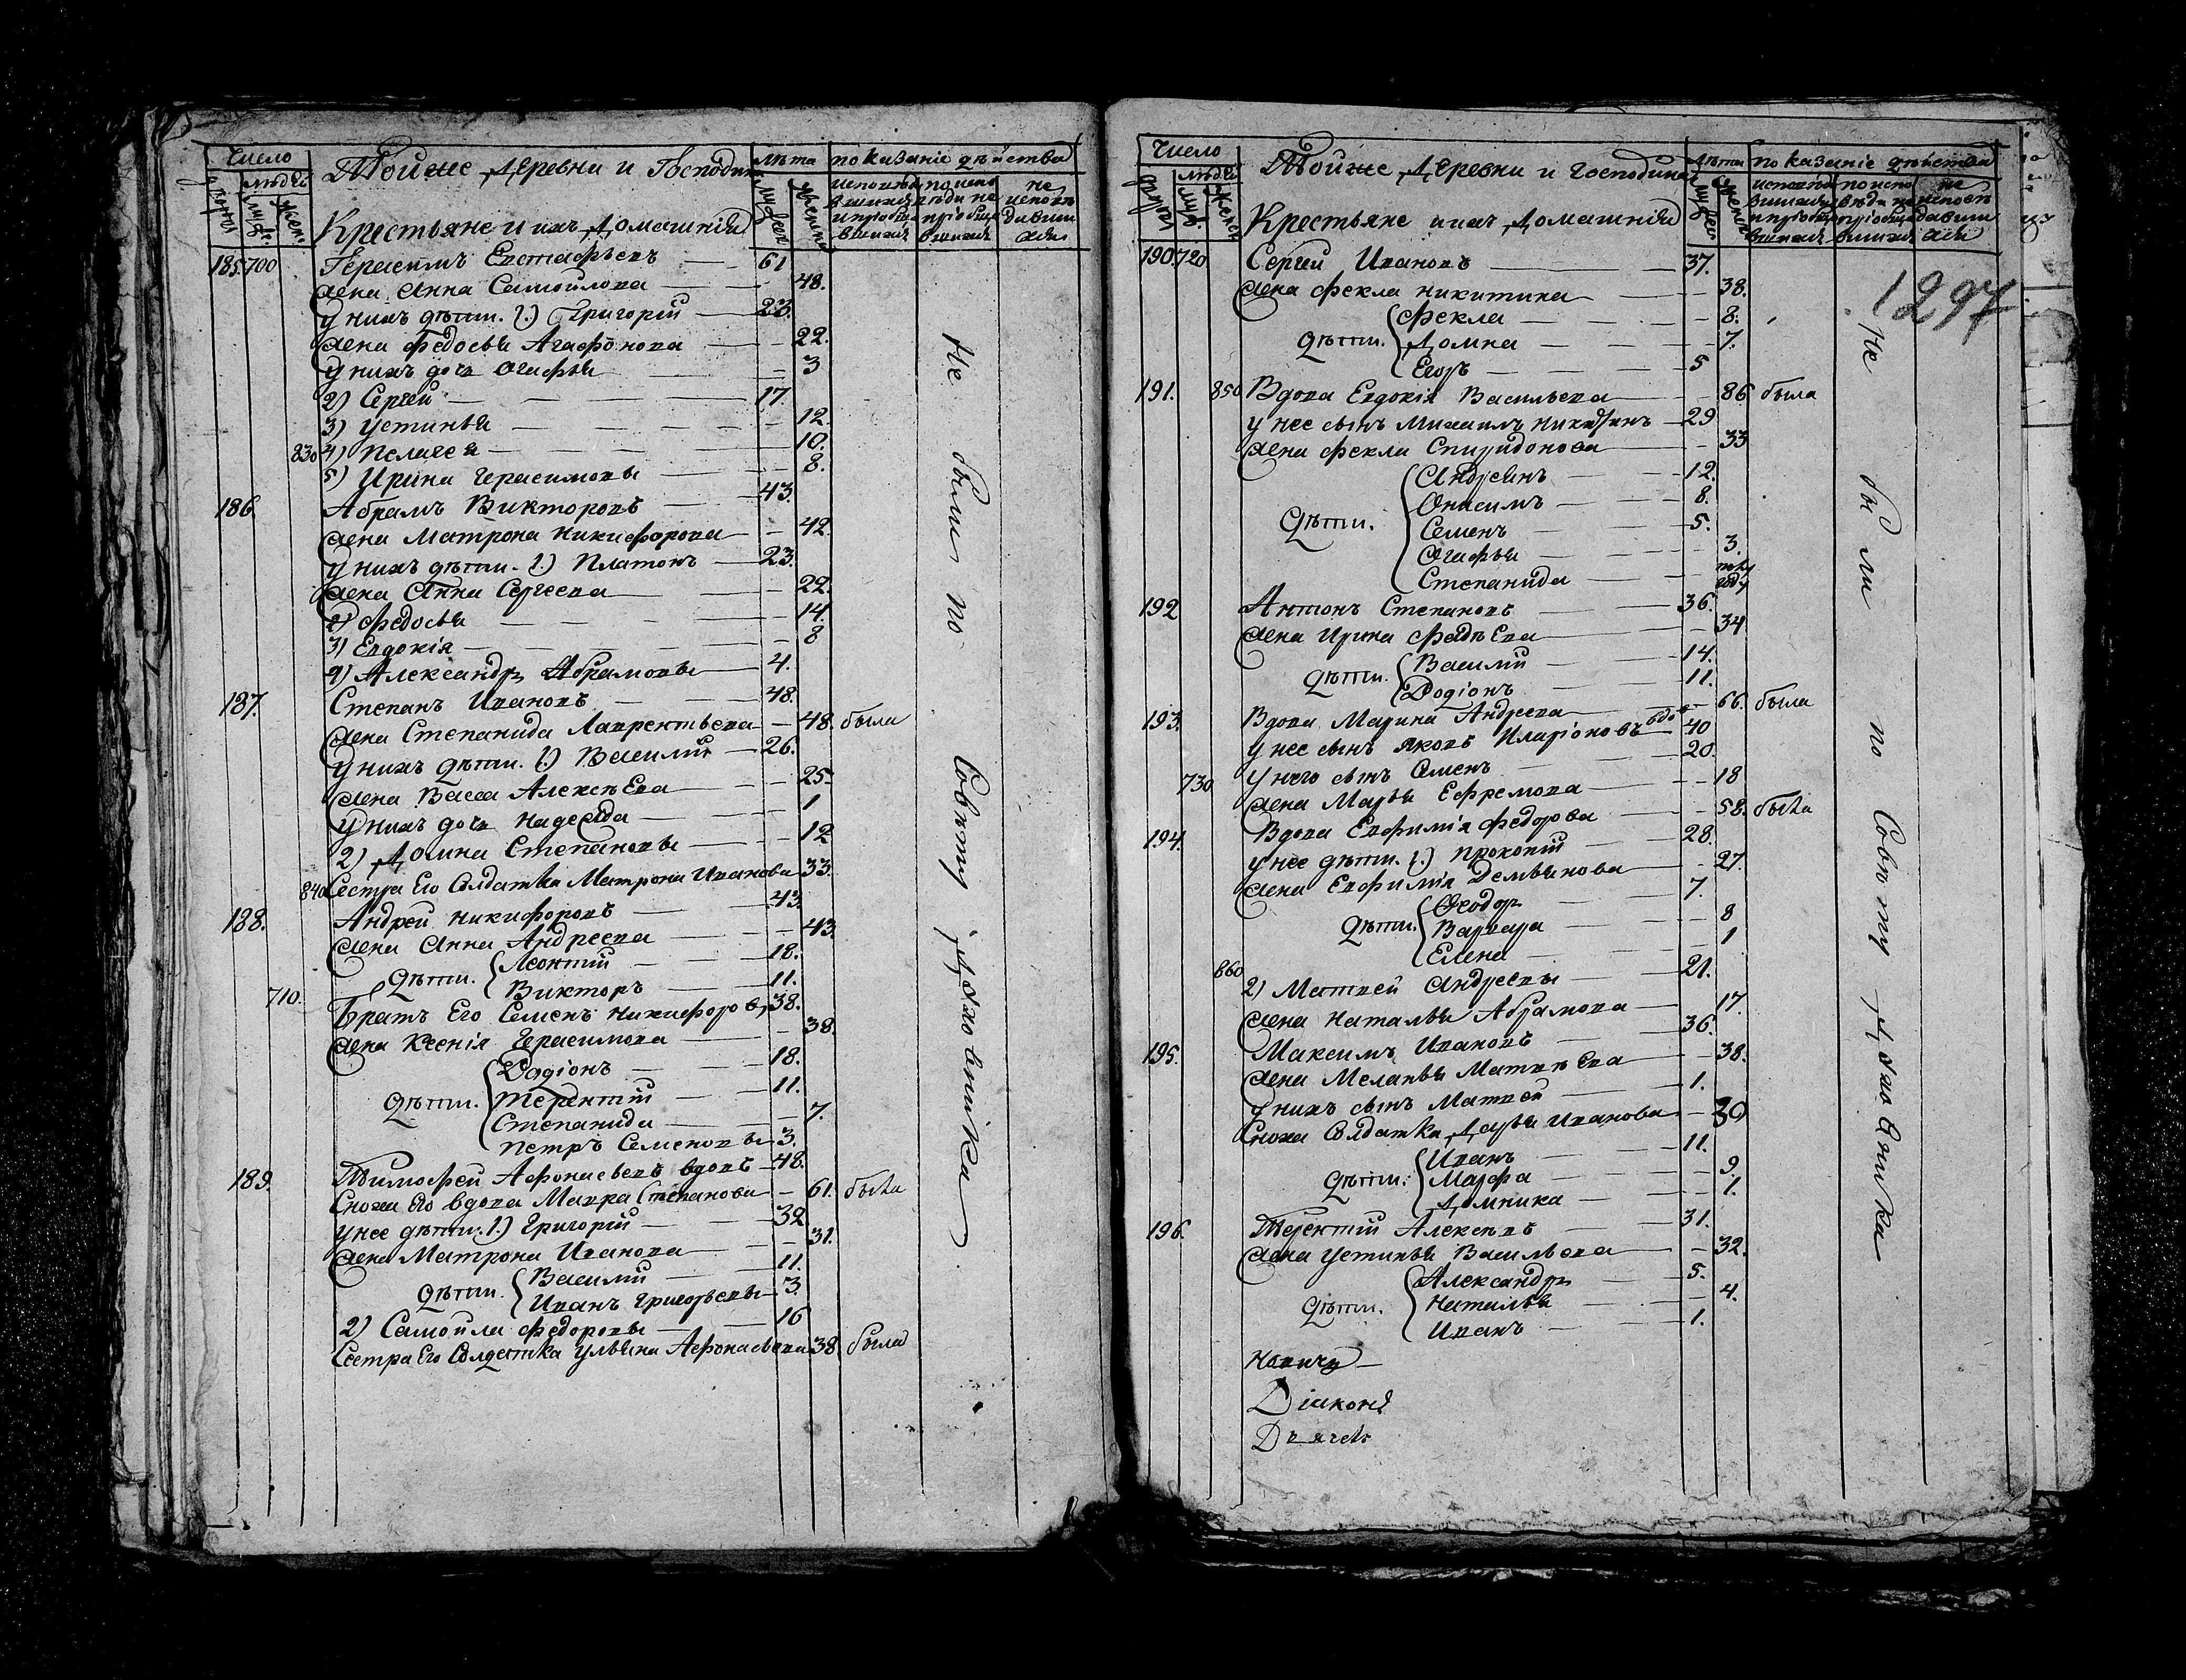 Число
людей
дворовъ
муж.
женс.
Тойже Деревни и Господина
Крестьяне и ихъ Домашнія
лѣта
мужес
женска
показаніе дѣйства
исповѣда вшихся и пріобща вшихся
по испо вѣди не пріобща вшихся
не исповѣ давши хся
185. 700 Герасимъ Евстафьевъ 61
жена Анна Самойлова 48.
у нихъ дѣти. 1.) Григорій 23.
жена Федосья Агафонова 22.
у нихъ дочь Огафья 3
2) Сергей 17.
3) Устинья 12.
830 4) Пелагея 10.
5) Ирина Герасимовы 8.
186. Абрамъ Викторовъ 43.
жена Матрона Никифорова 42.
у нихъ дѣти. 1.) Платонъ 23.
жена Анна Сергеева 22.
2) Федосья 14.
3) Евдокія 8
4) Александръ Абрамовы 4.
187. Степанъ Ивановъ 48.
жена Степанида Лаврентьева 48. была
у нихъ дѣти. 1.) Василій 26.
жена Васса Алексѣева 25
у нихъ дочь Надежда 1
2) Домна Степановы 12
840 Сестра Его Солдатка Матрона Иванова 33.
188. Андрей Никифоровъ 43.
жена Анна Андреева 43.
дѣти. Леонтій 18.
Викторъ 11.
710. Братъ Его Семенъ Никифоровъ 38.
жена Ксенія Герасимова 38.
дѣти. Родіонъ 18.
Терентій 11.
Степанида 7.
Петръ Семеновы 3.
189. Тимофей Афонасьевъ вдовъ 48.
Сноха Его вдова Мавра Степанова 61. была
у нее дѣти. 1.) Григорій 32
жена Матрона Иванова 31.
дѣти. Василій 11.
Иванъ Григорьевы 3.
2) Самойла Федоровы 16
Сестра Его Солдатка Ульяна Афонасьева 38 была
Не были по Совѣту Духовника
Число
людей
дворовъ
муж.
женск
Тойже Деревни и Господина
Крестьяне и ихъ Домашнія
лѣта
мужес
женск
показаніе дѣйства
исповѣда вшихся и пріобща вшихся
по испо вѣди не пріобща вшихся
не исповѣ давши хся
1297
190. 720 Сергей Ивановъ 37.
жена Фекла Никитина 38.
дѣти. Фекла 8.
Домна 7.
Егоръ 5
191. 850 Вдова Евдокія Васильева 86 была
у нее сынъ Михаилъ Никитинъ 29
жена Фекла Спиридонова 33
дѣти. Андреянъ 12.
Онисимъ 8.
Семенъ 5.
Огафья 3.
Степанида году
192 Антонъ Степановъ 36.
жена Ирина Фадѣева 34
дѣти. Василій 14.
Родіонъ 11.
193. Вдова Марина Андреева 66. была
у нее сынъ Яковъ Иларіоновъ вдовъ 40
у него сынъ Семенъ 20.
730 жена Марья Ефремова 18
194. Вдова Евфимія Федорова 58. была
у нее дѣти. 1.) Прокопій 28.
жена Евфимія Демьянова 27.
дѣти. Феодоръ 7.
Варвара 8
Елена 1
860 2) Матвей Андреевы 21.
жена Наталья Абрамова 17.
195. Максимъ Ивановъ 36.
жена Меланья Матвѣева 38.
у нихъ сынъ Матвей 1.
Сноха Солдатка Дарья Иванова 30
дѣти: Иванъ 11.
Марфа 9.
Домника 1.
196. Терентій Алексѣевъ 31.
жена Устинья Васильева 32.
дѣти. Александръ 5.
Наталья 4.
Иванъ 1.
Не были по Совѣту Духовника
Діаконъ
Дьячекъ